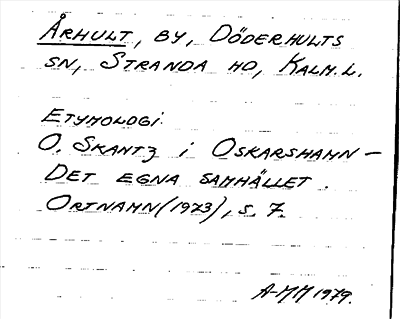 Århult, by, Döderhults
sn, Stranda hd, Kalm. l.
Etymologi
O. Skantz i Oskarshamn –
Det egna samhället.
Ortnamn (1973), s. 7.
A-MM 1979.